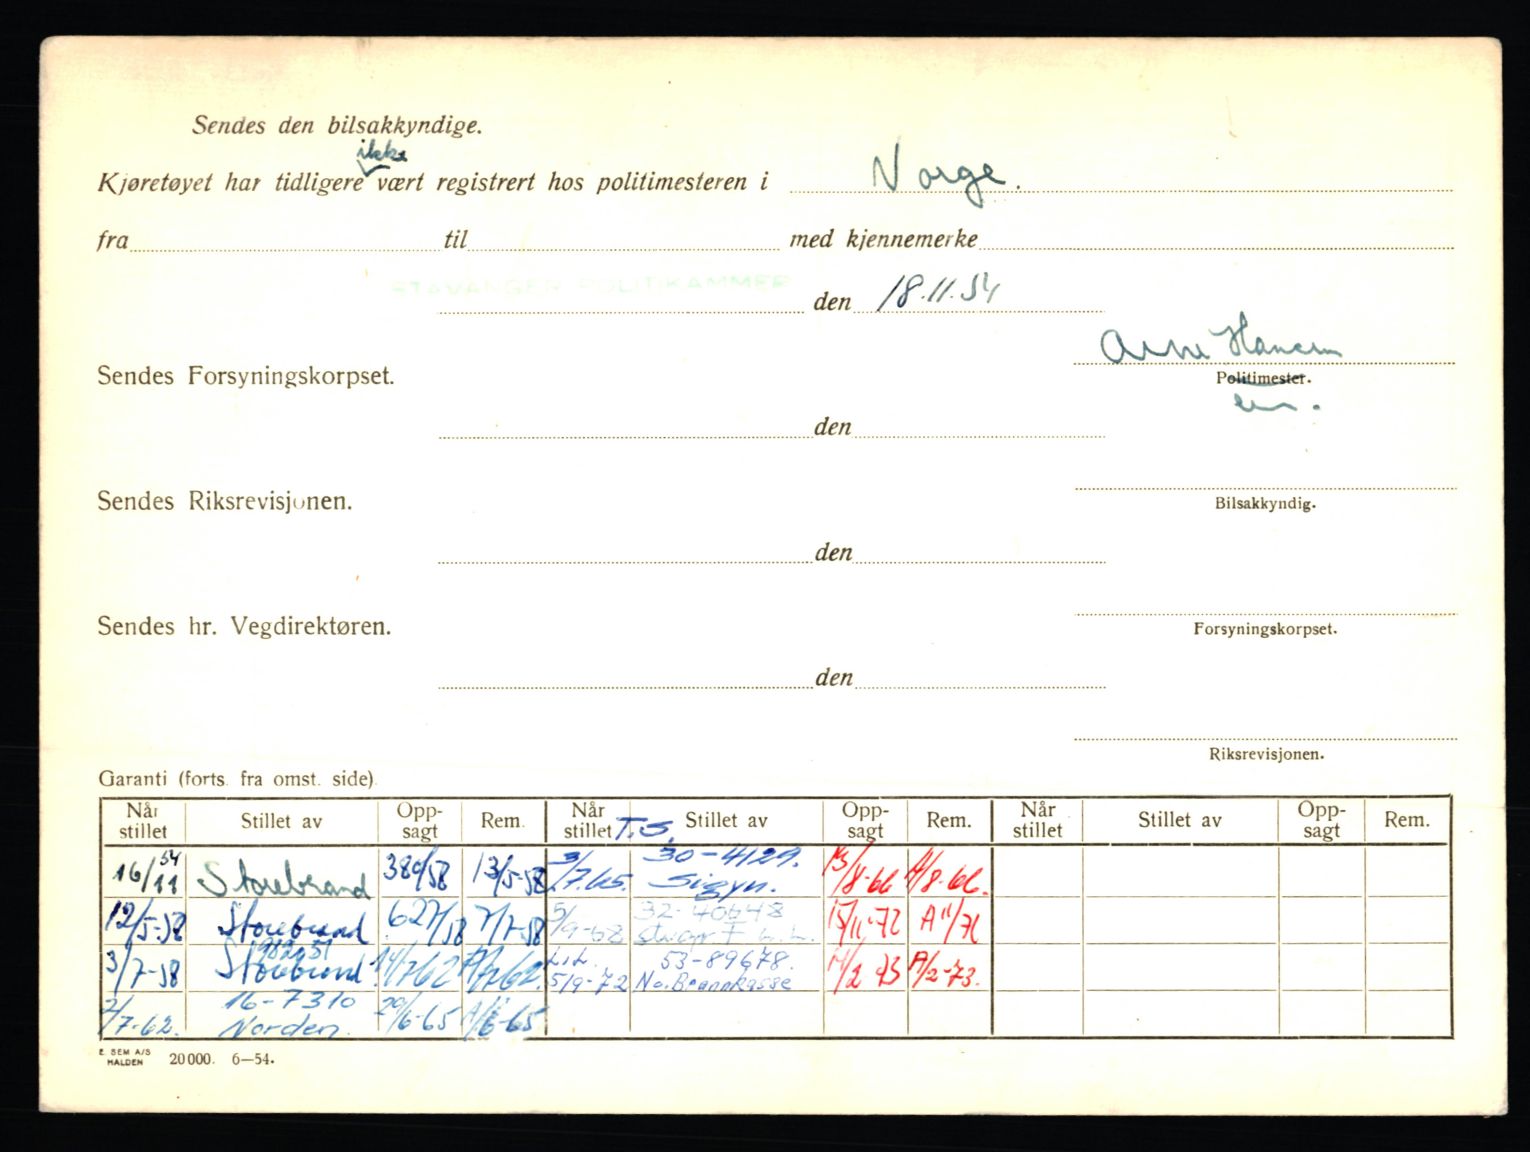 Sendes den bilsakkyndige.
ikke
Kjøretøyet har tidligere vært registrert hos politimesteren i Norge.
fra til med kjennemerke
STAVANGER POLITIKAMMER den 18.11.54
Arne Hansen
Sendes Forsyningskorpset. Politimester.
den
Sendes Riksrevisjonen. Bilsakkyndig.
den
Sendes hr. Vegdirektøren. Forsyningskorpset.
den
Riksrevisjonen.
Garanti (forts. fra omst. side).
Når stillet Stillet av Opp-sagt Rem. Når stillet T.S. Stillet av Opp-sagt Rem. Når stillet Stillet av Opp-sagt Rem.
16/11 54 Storebrand 380/58 13/5-58 /7.65. 30-4129. Sigyn. 13/8-66 A/8-66.
12/5-58 Storebrand 627/58 7/7-58 5/9-68 32-40648 15/11-72 A11/71
3/7-58 Storebrand 14/762 A/762. 5/9-72 53-89678. No. Brannkasse 14/2 73 A/2-73.
2/7-62. 16-7310 Norden. 29/6-65 A/6-65
E. SEM A/S
HALDEN 20 000. 6—54.